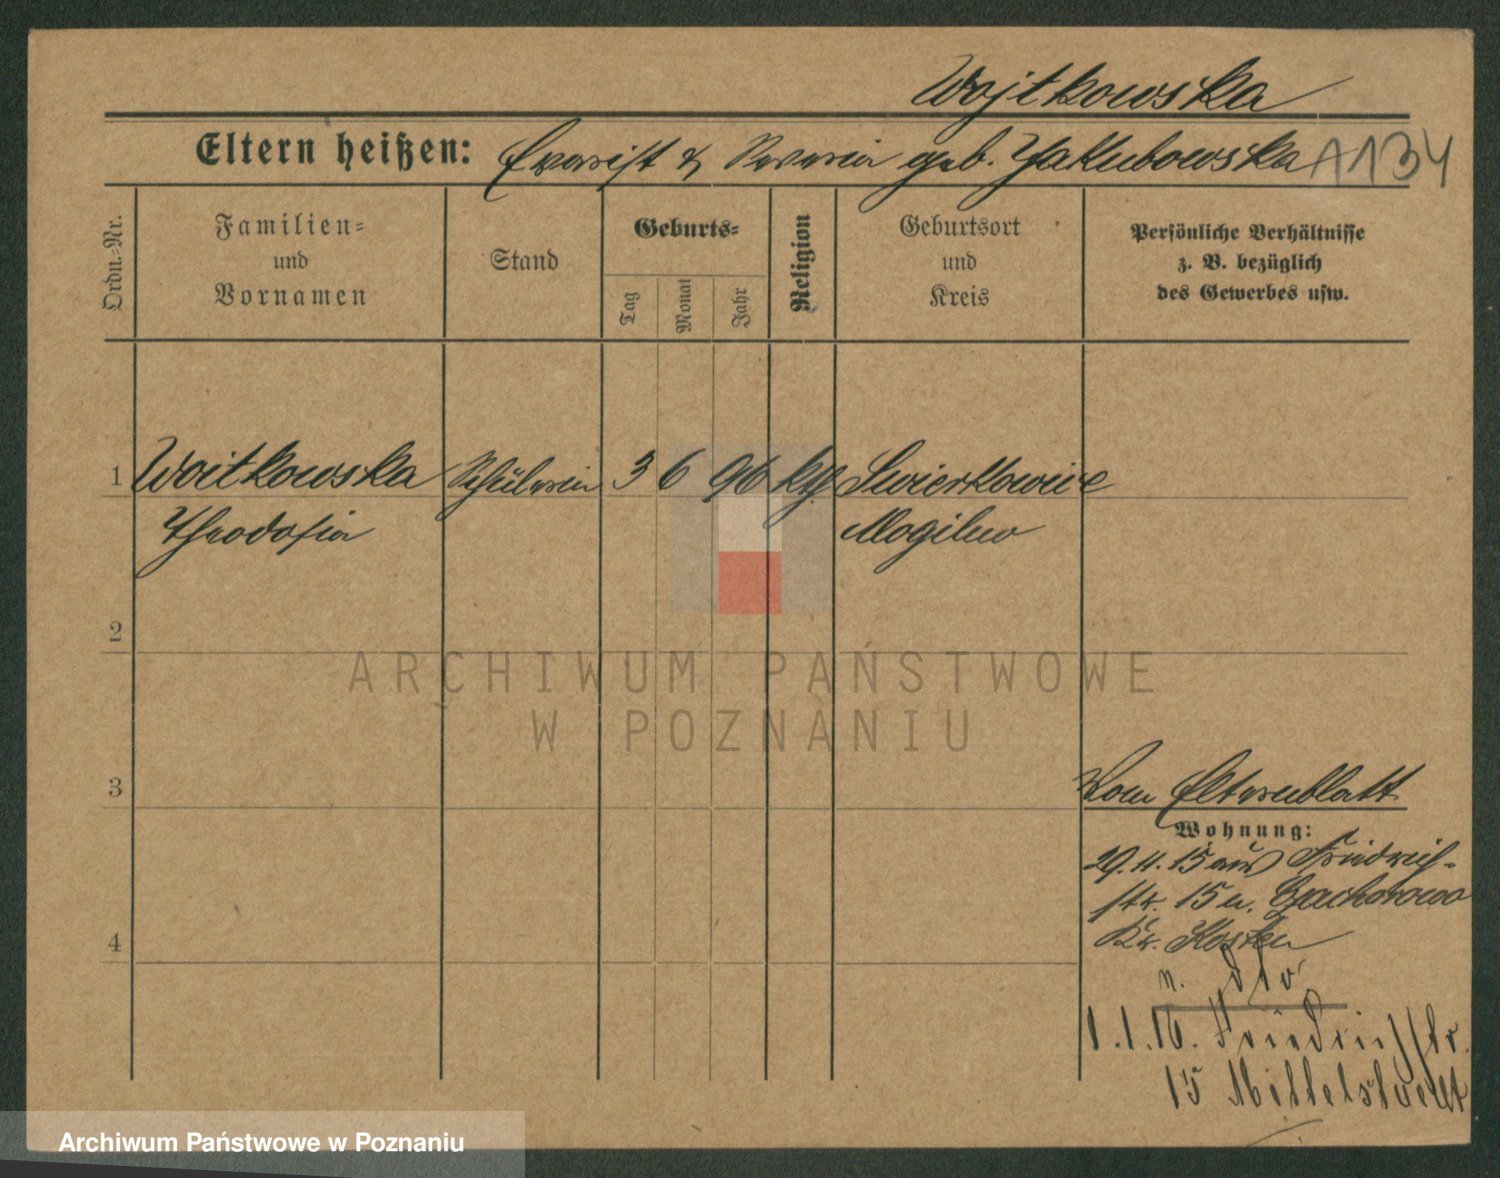 Wojtkowska
Eltern heißen: Evarist & Severin geb. Yakubowska A134
Ordn.-Nr.
Familien-
und
Vornamen
Stand
Geburts-
Tag
Monat
Jahr
Religion
Geburtsort
und
Kreis
Persönliche Verhältnisse
z. B. bezüglich
des Gewerbes usw.
1 Woitkowska Schülerin 3 6 96 kg Swierkowice
Theodosia Mogilno
2
3
4
Vom Elternblatt
Wohnung:
29.11.15 aus Friedrich-
str. 15 n. Czachorowo
Kr. Kosten
n.
1.1.16. Friedrichstr.
15
ARCHIWUM PAŃSTWOWE
W POZNANIU
Archiwum Państwowe w Poznaniu